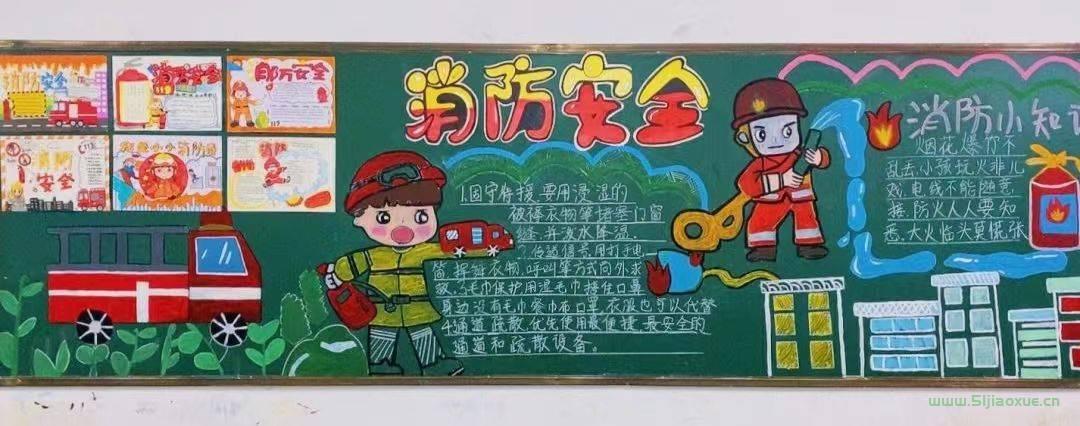 消防安全
消防安全
自防安全
消防
安全
争做小小消防员
消防
消防安全
1.固守待援,要用浸湿的
被褥衣物等堵塞门窗
缝,并泼水降温.
2.传递信号,用打手电
筒,挥舞衣物,呼叫等方式向外求
救,3.毛巾保护用湿毛巾捂住口罩
身边没有毛巾餐巾布口罩,衣服也可以代替
4通道疏散,优先使用最便捷,最安全的
通道和疏散设备。
消防小知识
烟花爆竹不
乱去,小孩玩火非儿
戏.电线不能随意
接.防火人人要知
悉、大火临头莫慌张
www.51jiaoxue.cn